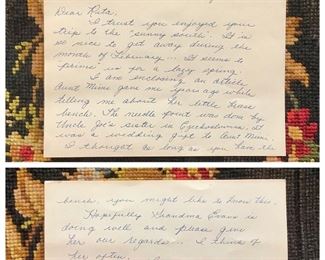 Dear Rita:
I trust you enjoyed your
trip to the "sunny south". It is
so nice to get away during the
month of February... It seems to
prime us for a lazy spring.
I am enclosing an article
Aunt Mime gave me years ago while
telling me about her little brass
bench. The needle point was done by
Uncle Joe's sister in Czechoslovakia. It
was a wedding gift to Aunt Mime.
I thought as long as you have the
bench, you might like to know this.
Hopefully Grandma Evans is
doing well and please give
her our regards... I think of
her often.